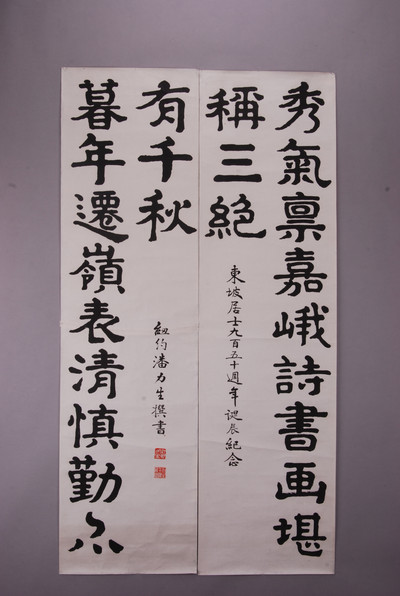 秀氣禀嘉峨詩書画堪
稱三絶
東坡居士九百五十週年誕辰紀念
暮年遷嶺表清慎勤亦
有千秋
紐約潘力生撰書